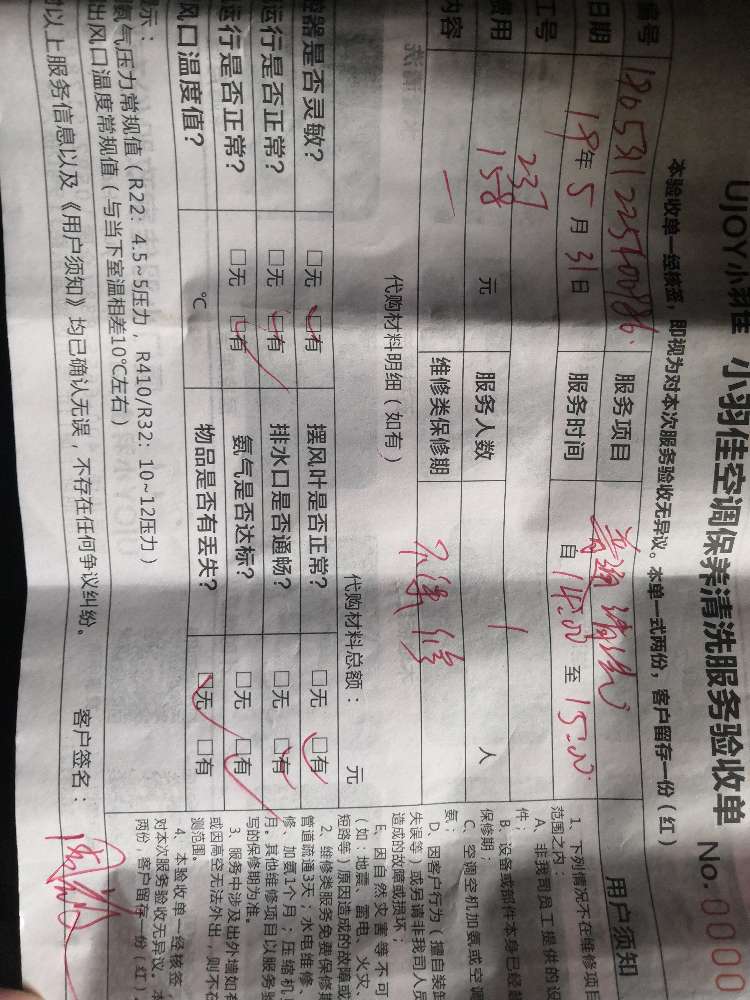 UJOY小羽佳 小羽佳空调保养清洗服务验收单 No.0000
本验收单一经核签，即视为对本次服务验收无异议。本单一式两份，客户留存一份（红）
编号 服务项目 普通清洗 用户须知
日期 18年5月31日 服务时间 自14:00 至15:00
工号 237
费用 158 元 服务人数 1 人
内容 一 维修类保修期 不保修
代购材料明细（如有）
代购材料总额： 元
器是否灵敏？ □无 □有 摆风叶是否正常？ □无 □有
运行是否正常？ □无 □有 排水口是否通畅？ □无 □有
运行是否正常？ □无 □有 氨气是否达标？ □无 □有
风口温度值？ ℃ 物品是否有丢失？ □无 □有
示：
氨气压力常规值（R22：4.5~5压力，R410/R32：10~12压力）
出风口温度常规值（与当下室温相差10℃左右）
以上服务信息以及《用户须知》均已确认无误，不存在任何争议纠纷。 客户签名：
1、下列情况不在维修项
范围之内：
A、非我司员工提供的设
件；
B、设备或部件本身已经超
保修期；
C、空调空机加氨或空调
氨；
D、因客户行为（擅自装卸
失误等）或另请非我司人员
造成的故障或损坏；
E、因自然灾害等不可
（如：地震、雷电、火灾、
短路等）原因造成的故障或
2、维修类服务免费保修期
管道疏通3天；水电维修、
修、加氨1个月；压缩机
月。其他维修项目以服务验
写的保修期为准。
3、服务中涉及出外墙如有
或因高空无法外出，则不在
测范围。
4、本验收单一经核签，
对本次服务验收无异议，本
两份，客户留存一份（红）